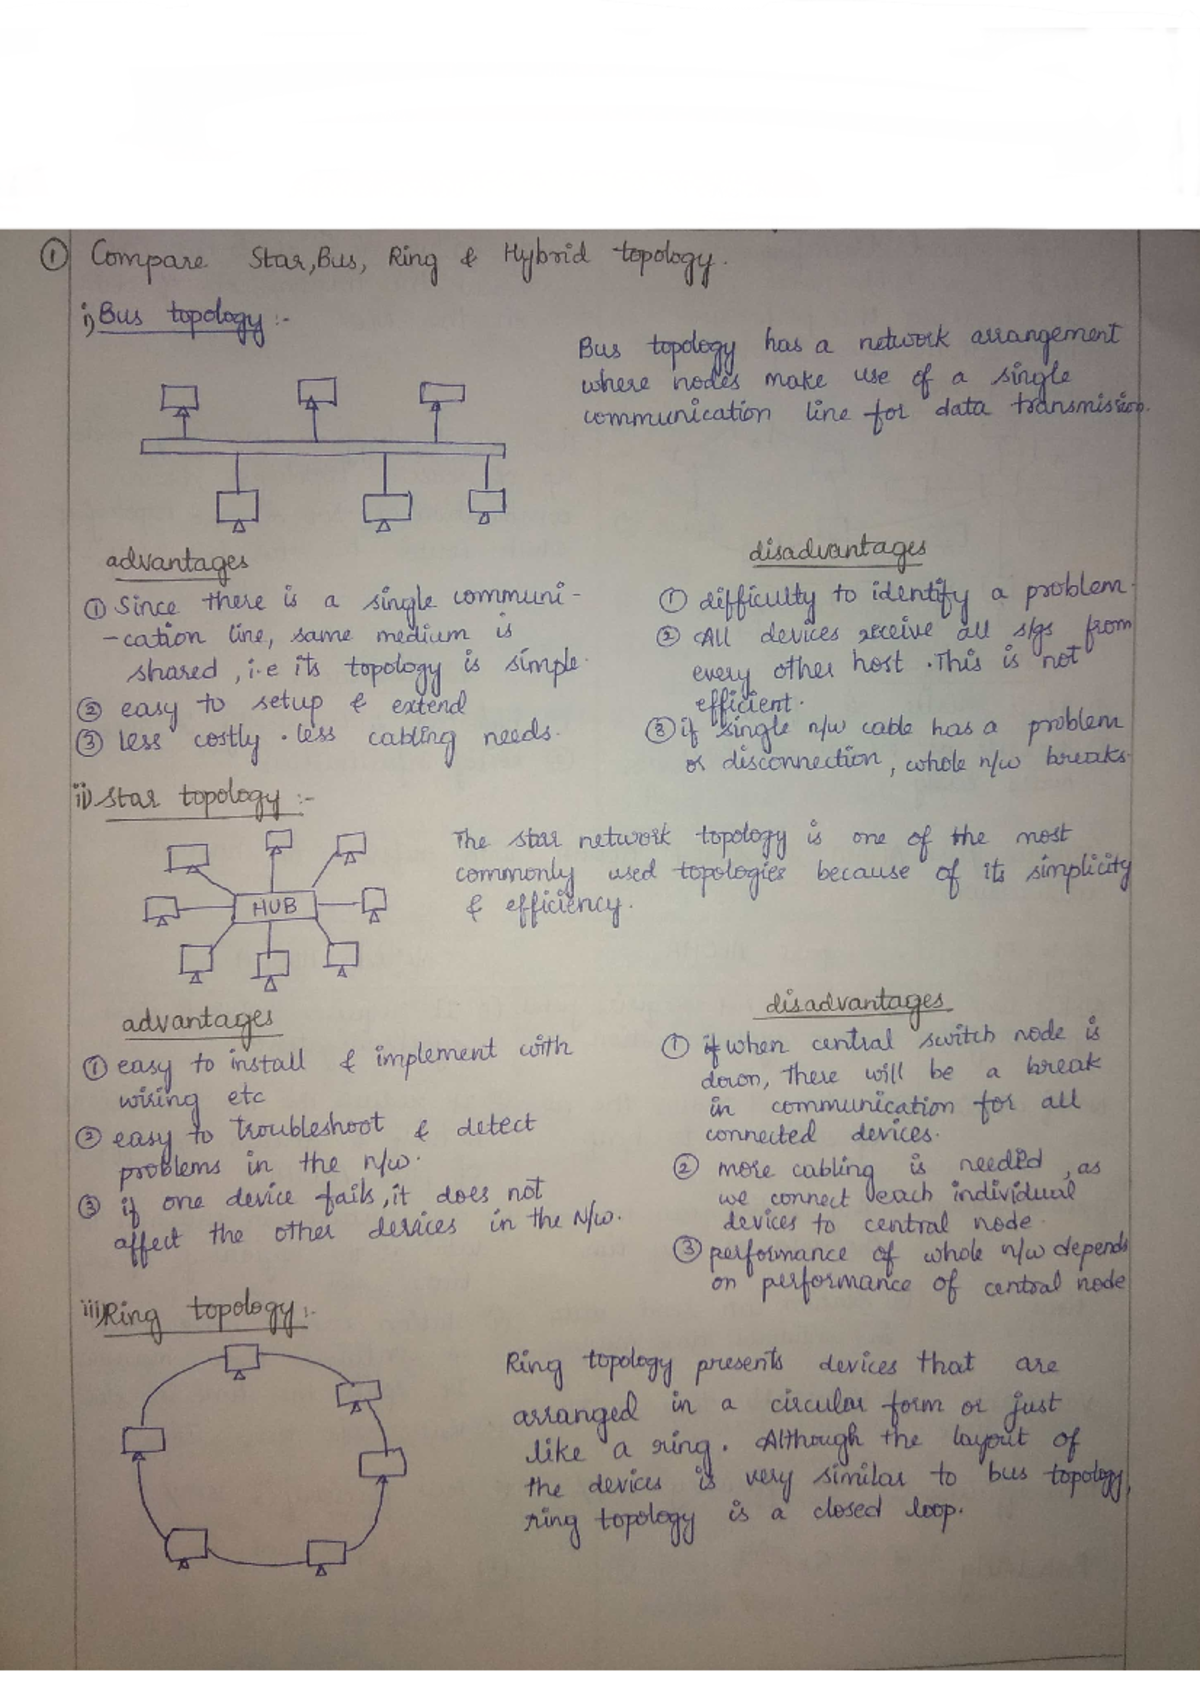 ① Compare Star, Bus, Ring & Hybrid topology.
i) Bus topology :-
Bus topology has a network arrangement
where nodes make use of a single
communication line for data transmission.
advantages
① Since there is a single communi-
-cation line, same medium is
shared, i.e its topology is simple.
② easy to setup & extend
③ less costly . less cabling needs.
disadvantages
① difficulty to identify a problem.
② All devices receive all sgs from
every other host . This is not
efficient.
③ if single n/w cable has a problem
or disconnection, whole n/w breaks.
ii) Star topology :-
HUB
The star network topology is one of the most
commonly used topologies because of its simplicity
& efficiency.
advantages
① easy to install & implement with
wiring etc
② easy to troubleshoot & detect
problems in the n/w.
③ if one device fails, it does not
affect the other devices in the N/w.
disadvantages
① when central switch node is
down, there will be a break
in communication for all
connected devices.
② more cabling is needed, as
we connect each individual
devices to central node.
③ performance of whole n/w depends
on performance of central node
iii) Ring topology :-
Ring topology presents devices that are
arranged in a circular form or just
like a ring. Although the layout of
the devices is very similar to bus topology,
ring topology is a closed loop.